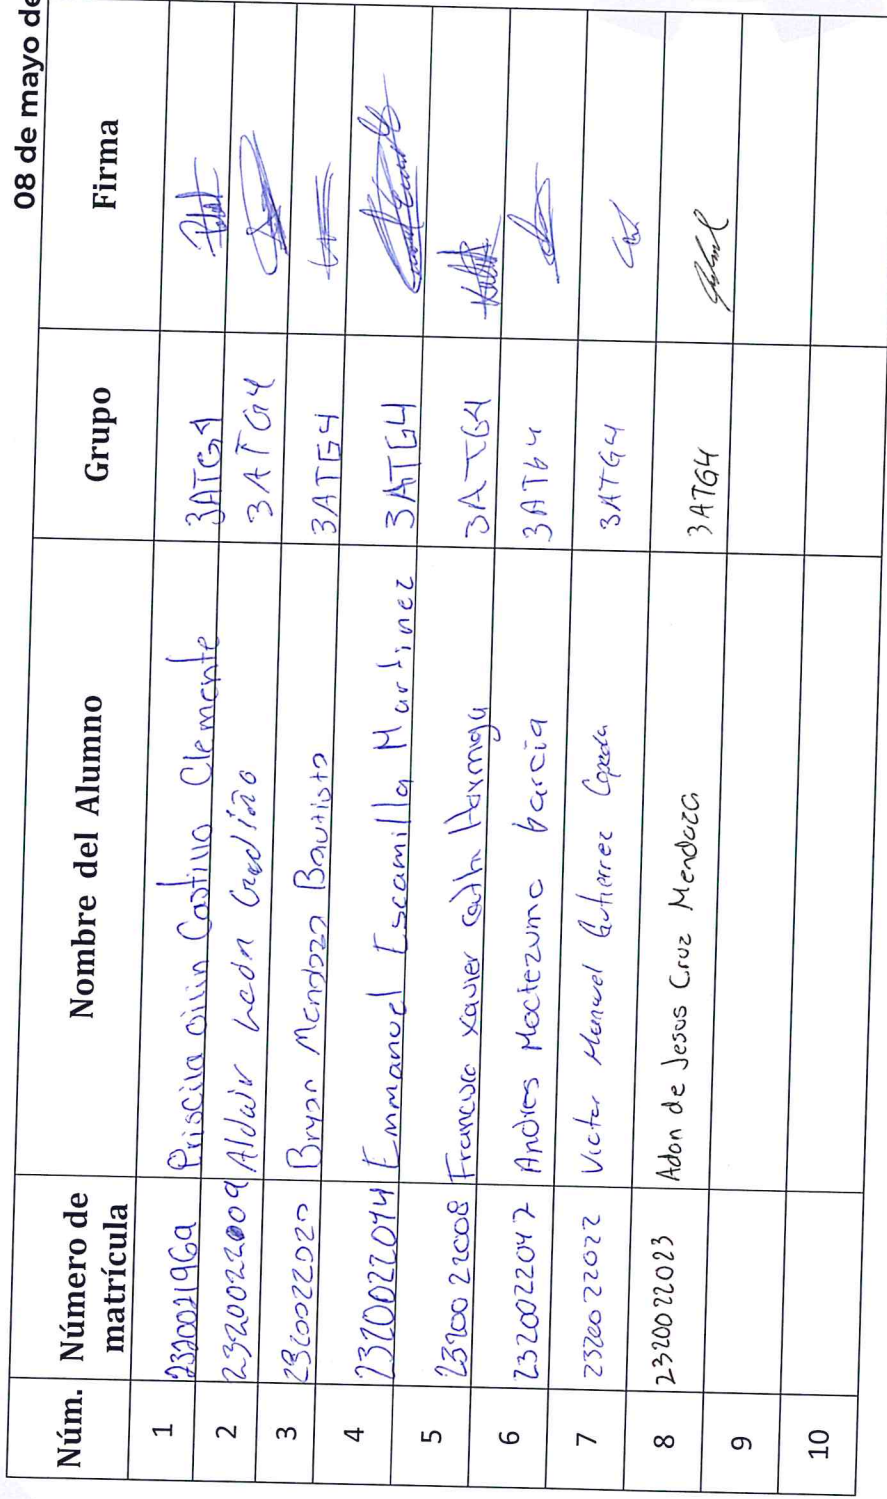 08 de mayo de
Núm. Número de matrícula Nombre del Alumno Grupo Firma
1 2320021969 Priscila Castillo Clemente 3ATG4
2 2320022009 Aldair León 3ATG4
3 2320022020 Bryan Mendoza Bautista 3ATG4
4 2320022044 Emmanuel Escamilla Martinez 3ATG4
5 2320022008 Xavier 3ATG4
6 2320022047 Andres Moctezuma Garcia 3ATG4
7 2320022022 Victor Manuel Gutierrez Cepeda 3ATG4
8 2320022023 Adon de Jesus Cruz Mendoza 3ATG4
9
10